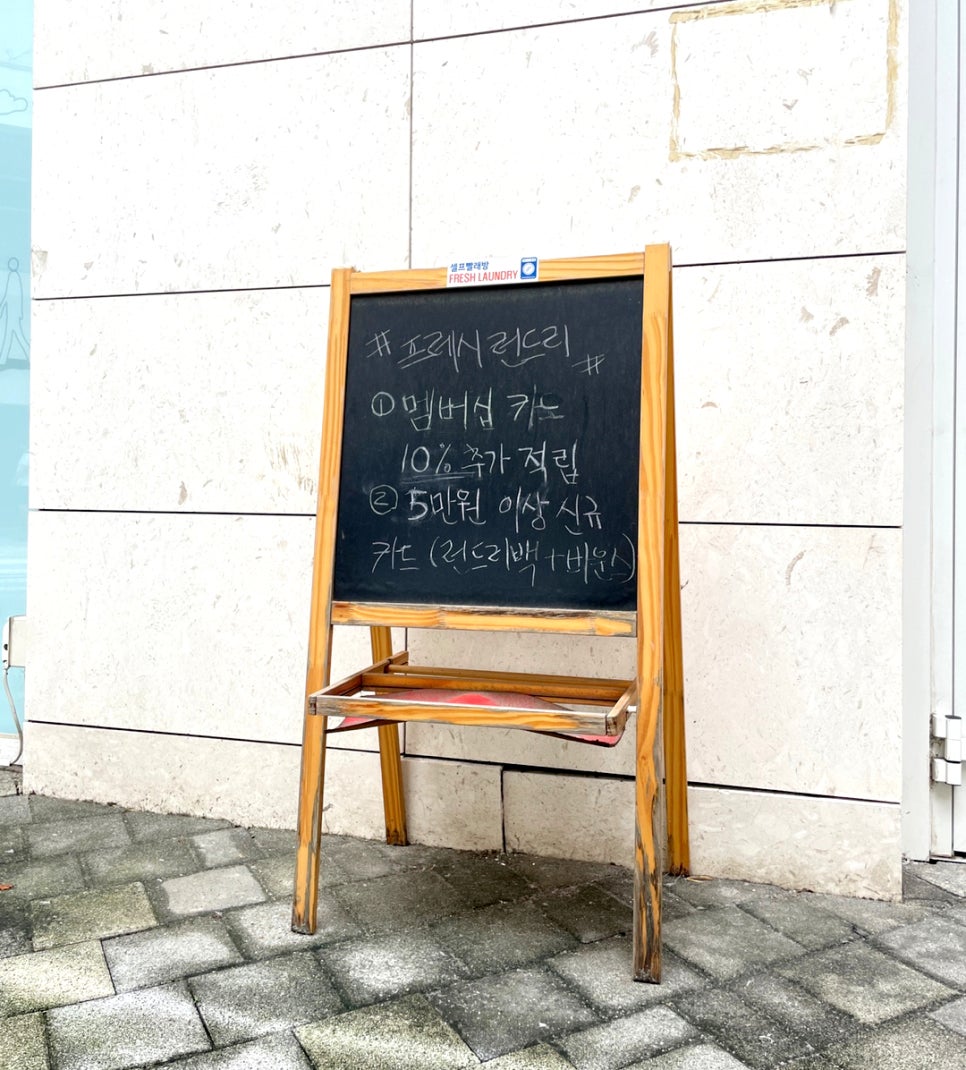 셀프빨래방
FRESH LAUNDRY
# 프레시 런드리 #
① 멤버십 카드
10% 추가 적립
② 5만원 이상 신규
카드 (런드리백 + 비운스)